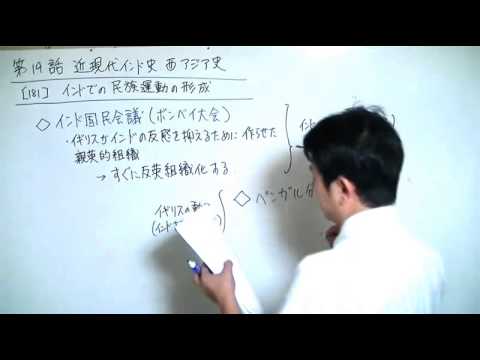 第19話 近現代インド史 西アジア史
[181] インドでの民族運動の形成
◇ インド国民会議(ボンベイ大会)
・イギリスがインドの反感を抑えるために作らせた
親英的組織
→ すぐに反英組織化する
イギリスの動
(インド
◇ ベンガル